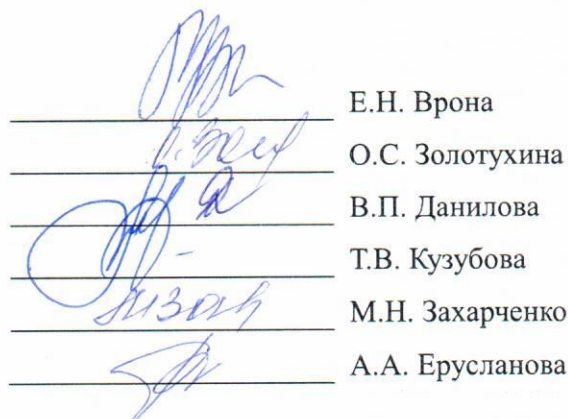 Е.Н. Врона
О.С. Золотухина
В.П. Данилова
Т.В. Кузубова
М.Н. Захарченко
А.А. Ерусланова